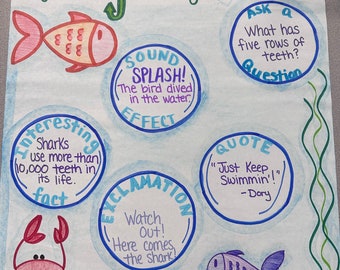 ASK A
What has
five rows of
teeth?
Question
SOUND
SPLASH!
The bird dived
in the water.
EFFECT
Interesting
Sharks
use more than
10,000 teeth in
its life.
fact
QUOTE
"Just Keep
Swimmin'!"
-Dory
EXCLAMATION
Watch
Out!
Here comes
the shark!